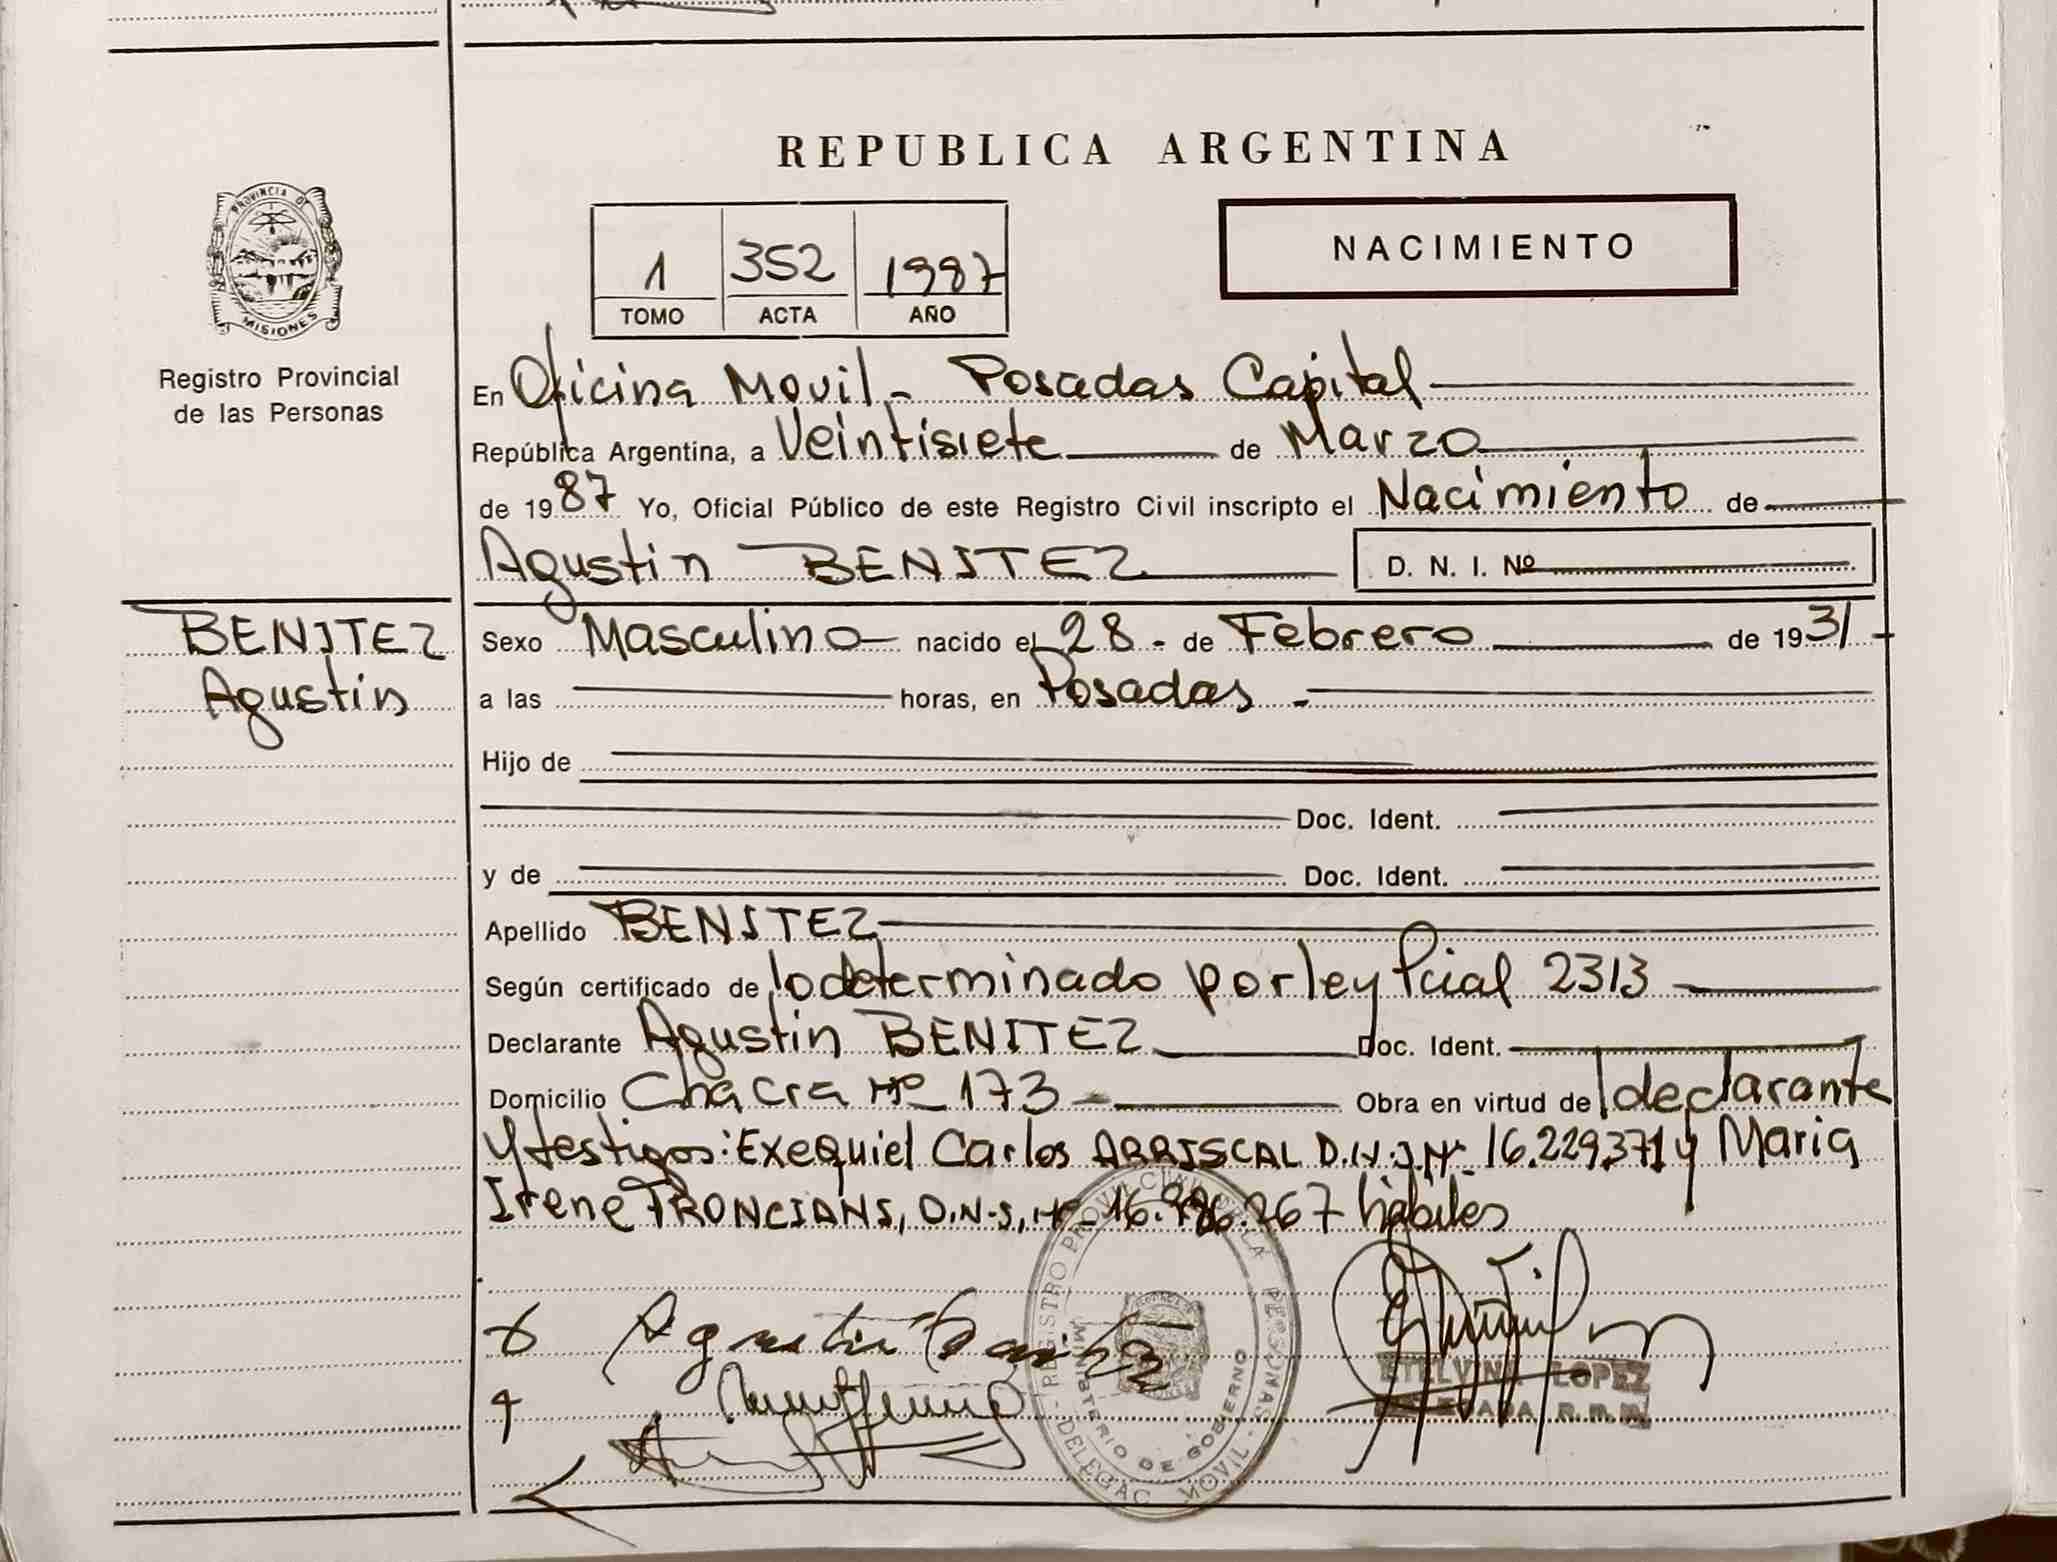 REPUBLICA ARGENTINA
NACIMIENTO
1 352 1987
TOMO ACTA AÑO
PROVINCIA DE
MISIONES
Registro Provincial
de las Personas
En Oficina Movil - Posadas Capital
República Argentina, a Veintisiete de Marzo
de 1987 Yo, Oficial Público de este Registro Civil inscripto el Nacimiento de
Agustin BENITEZ D. N. I. Nº
BENITEZ
Agustin
Sexo Masculino nacido el 28 - de Febrero de 1931
a las horas, en Posadas -
Hijo de
Doc. Ident.
y de Doc. Ident.
Apellido BENITEZ
Según certificado de lo determinado por ley Pcial 2313
Declarante Agustin BENITEZ Doc. Ident.
Domicilio Chacra Nº 173 - Obra en virtud de declarante
y testigos: Exequiel Carlos ARRISCAL D.N.I.Nº 16.229.371 y Maria
Irene TRONCIANS, D.N.I., Nº 267 hábiles
Agustin Benitez
REGISTRO PROVINCIAL DE LAS PERSONAS
MINISTERIO DE GOBIERNO
DELEGAC MOVIL
ETELVINA LOPEZ